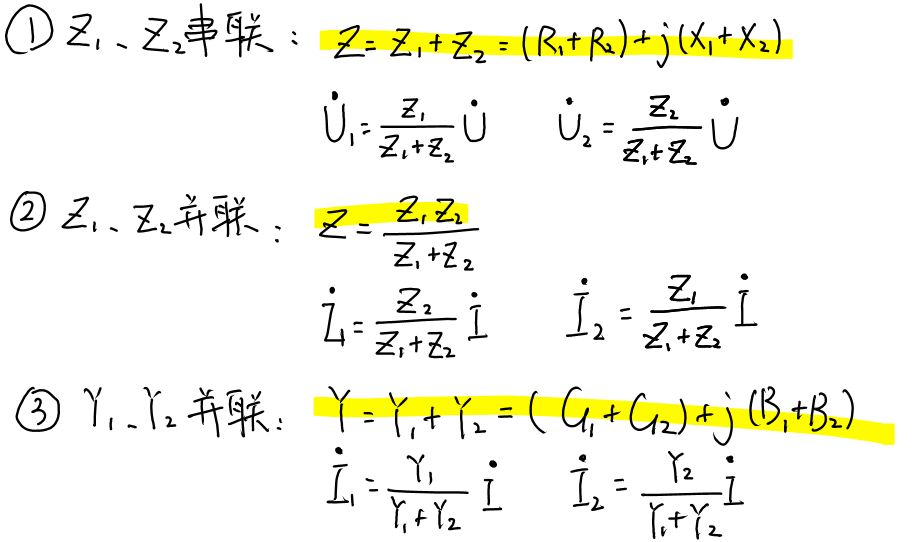 ① Z₁、Z₂串联： Z = Z₁ + Z₂ = (R₁ + R₂) + j(X₁ + X₂)
U̇₁ = Z₁/(Z₁+Z₂) U̇    U̇₂ = Z₂/(Z₁+Z₂) U̇
② Z₁、Z₂并联： Z = Z₁Z₂/(Z₁+Z₂)
İ₁ = Z₂/(Z₁+Z₂) İ    İ₂ = Z₁/(Z₁+Z₂) İ
③ Y₁、Y₂并联： Y = Y₁ + Y₂ = (G₁ + G₂) + j(B₁ + B₂)
İ₁ = Y₁/(Y₁+Y₂) İ    İ₂ = Y₂/(Y₁+Y₂) İ